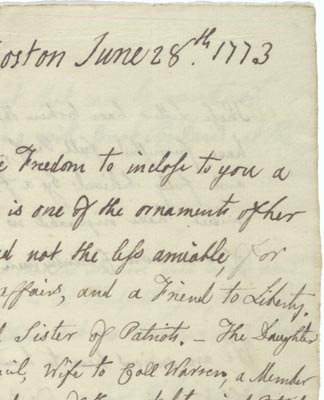 oston June 28.th 1773
Freedom to inclose to you a
is one of the ornaments of her
not the less amiable, for
affairs, and a Friend to Liberty.
Sister of Patriots. – The Daughter
cil, Wife to Coll Warren, a Member